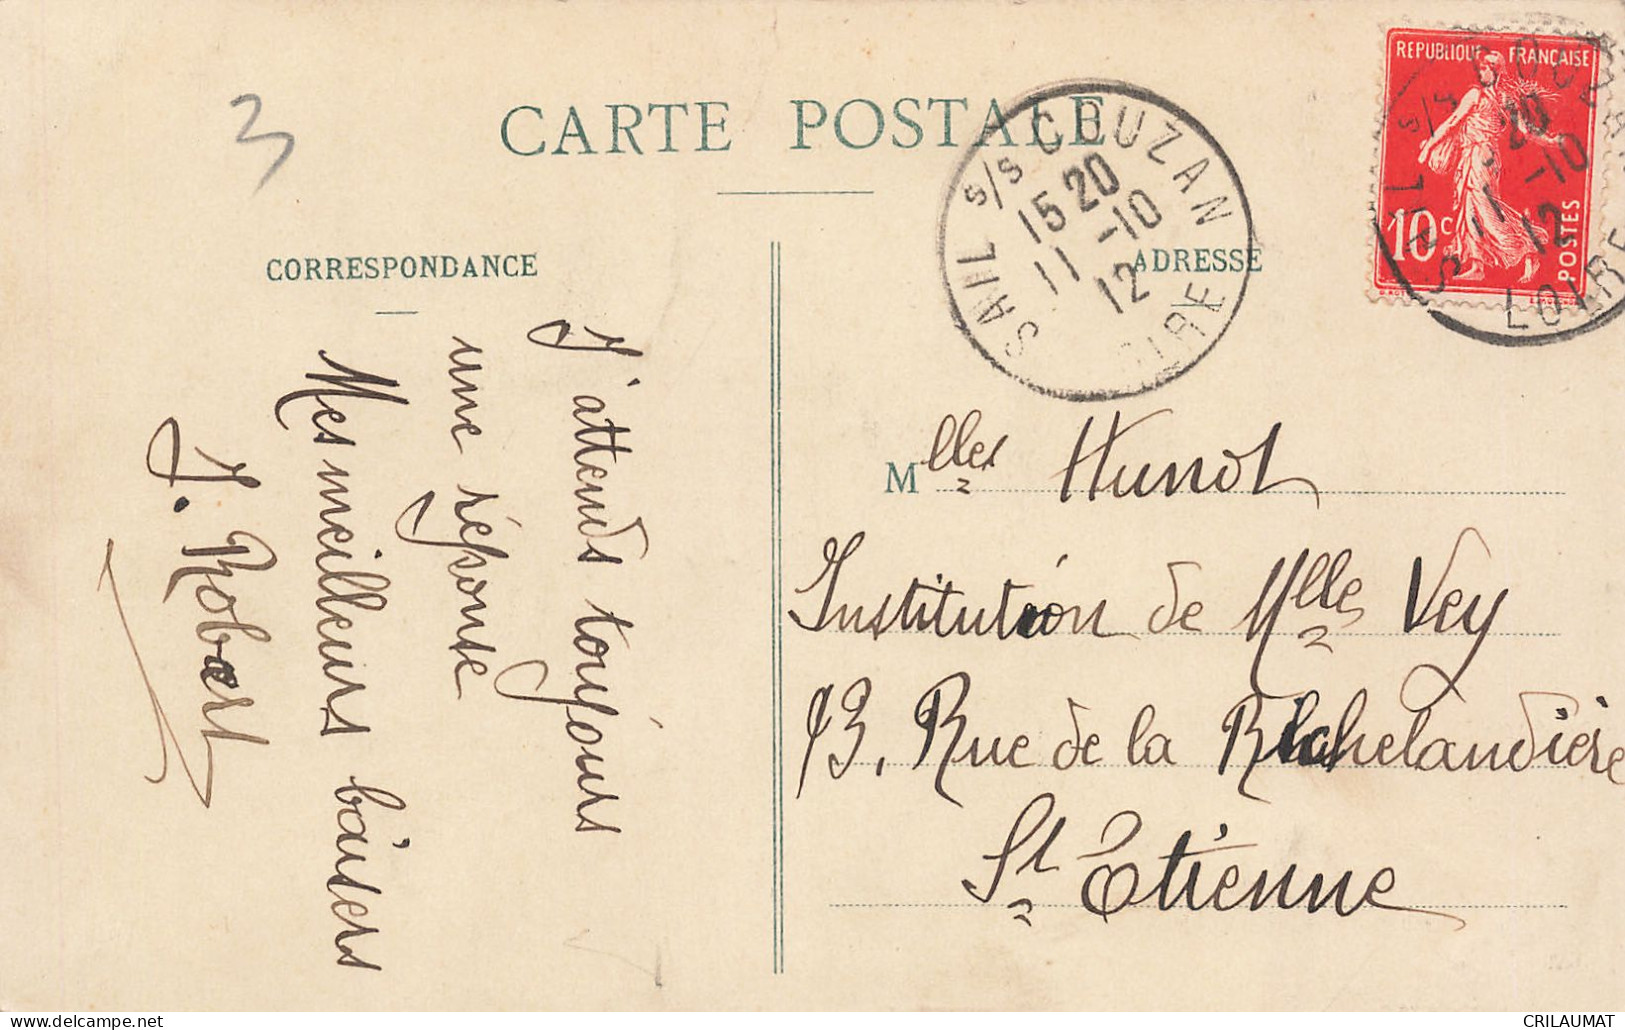 3
CARTE POSTALE
CORRESPONDANCE
J'attends toujours
une réponse
Mes meilleurs baisers
J. Robert
SAIL s/s COUZAN
15 20
11 -10
12
LOIRE
REPUBLIQUE FRANÇAISE
10c
POSTES
SAIL s/s COUZAN
20
11 -10
12
LOIRE
ADRESSE
Mlles Hunot
Institution de Mlle Vey
13, Rue de la Richelandière
St Étienne
CRILAUMAT